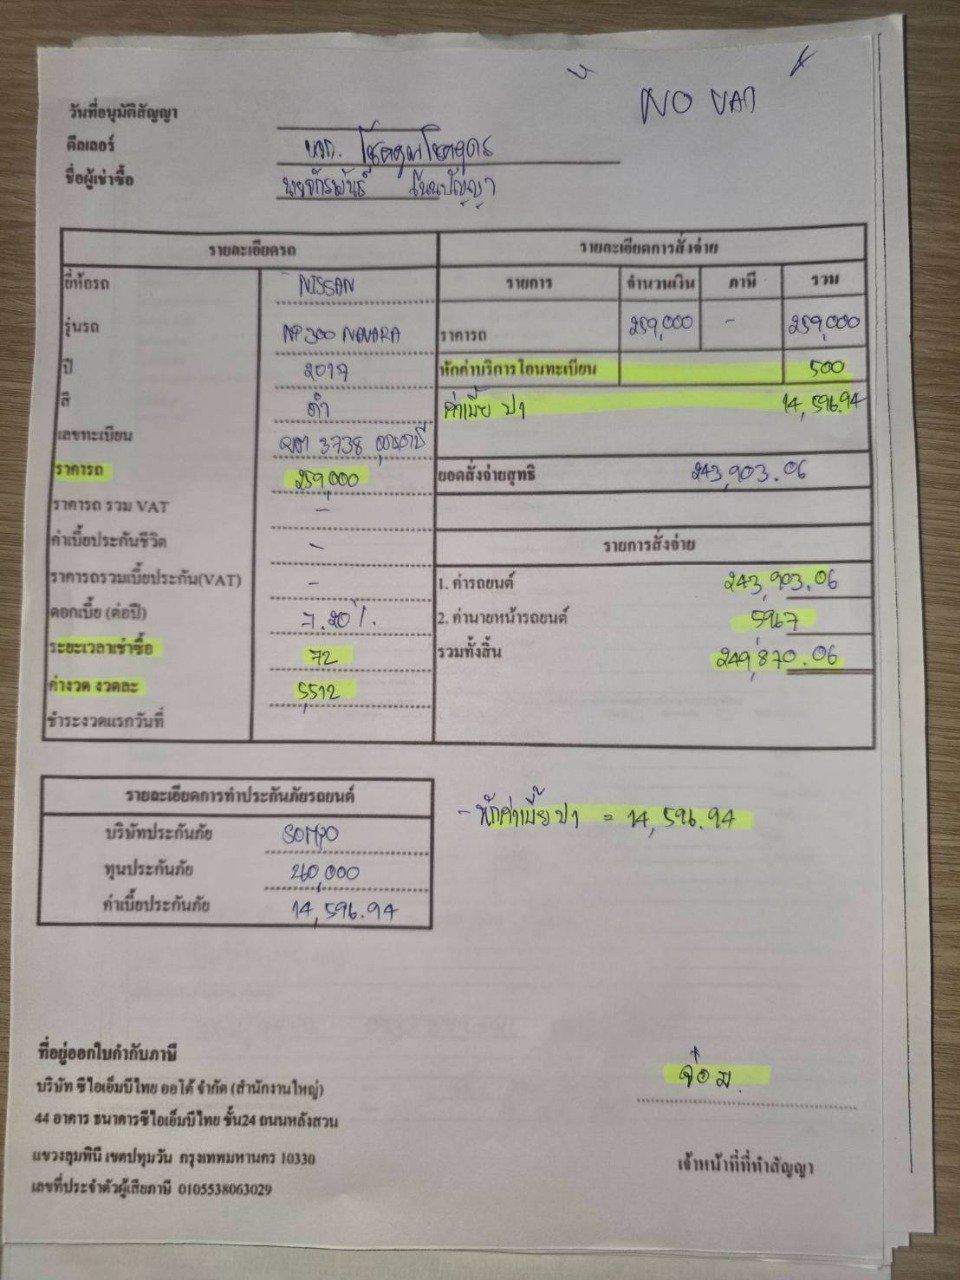 NO VAT
วันที่อนุมัติสัญญา
ดีลเลอร์ หจก. โชคคูณโชคอุดร
ชื่อผู้เช่าซื้อ นายจักรพันธ์ โนนปัญญา
รายละเอียดรถ
ยี่ห้อรถ NISSAN
รุ่นรถ NP 300 NAVARA
ปี 2017
สี ดำ
เลขทะเบียน 3738 อุดรธานี
ราคารถ 259,000
ราคารถ รวม VAT -
ค่าเบี้ยประกันชีวิต -
ราคารถรวมเบี้ยประกัน(VAT) -
ดอกเบี้ย (ต่อปี) 7.20%.
ระยะเวลาเช่าซื้อ 72
ค่างวด งวดละ 5,512
ชำระงวดแรกวันที่
รายละเอียดการสั่งจ่าย
รายการ จำนวนเงิน ภาษี รวม
ราคารถ 259,000 - 259,000
หักค่าบริการโอนทะเบียน 500
ค่าเบี้ย ป1 14,596.94
ยอดสั่งจ่ายสุทธิ 243,903.06
รายการสั่งจ่าย
1. ค่ารถยนต์ 243,903.06
2. ค่านายหน้ารถยนต์ 5967
รวมทั้งสิ้น 249,870.06
รายละเอียดการทำประกันภัยรถยนต์
บริษัทประกันภัย SOMPO
ทุนประกันภัย
ค่าเบี้ยประกันภัย 14,596.94
- หักค่าเบี้ย ป1 = 14,596.94
ที่อยู่ออกใบกำกับภาษี
บริษัท ซีไอเอ็มบีไทย ออโต้ จำกัด (สำนักงานใหญ่)
44 อาคาร ธนาคารซีไอเอ็มบีไทย ชั้น24 ถนนหลังสวน
แขวงลุมพินี เขตปทุมวัน กรุงเทพมหานคร 10330
เลขที่ประจำตัวผู้เสียภาษี 0105538063029
เจ้าหน้าที่ที่ทำสัญญา